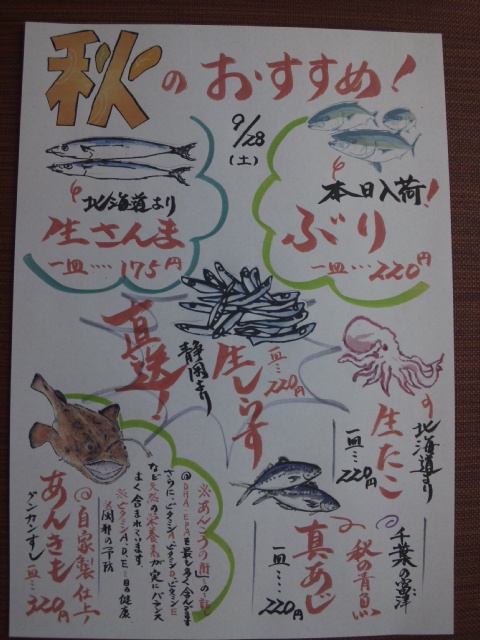 秋のおすすめ!
9/28
(土)
北海道より
生さんま
一皿‥‥175円
本日入荷!
ぶり
一皿‥‥220円
直送!
静岡より
生しらす
一皿‥220円
北海道より
生たこ
一皿‥220円
千葉の富津
秋の青魚
真あじ
一皿‥‥220円
※あんこうの肝の
DHA・EPAを最も多く含んでます
さらに、ビタミンA、ビタミンD、ビタミンE
など天然の栄養素が実にバランス
よく含まれています。
※ビタミンA、D、E=目の健康
関節の予防
@自家製仕上
あんきも
グンカンすし 一皿‥320円